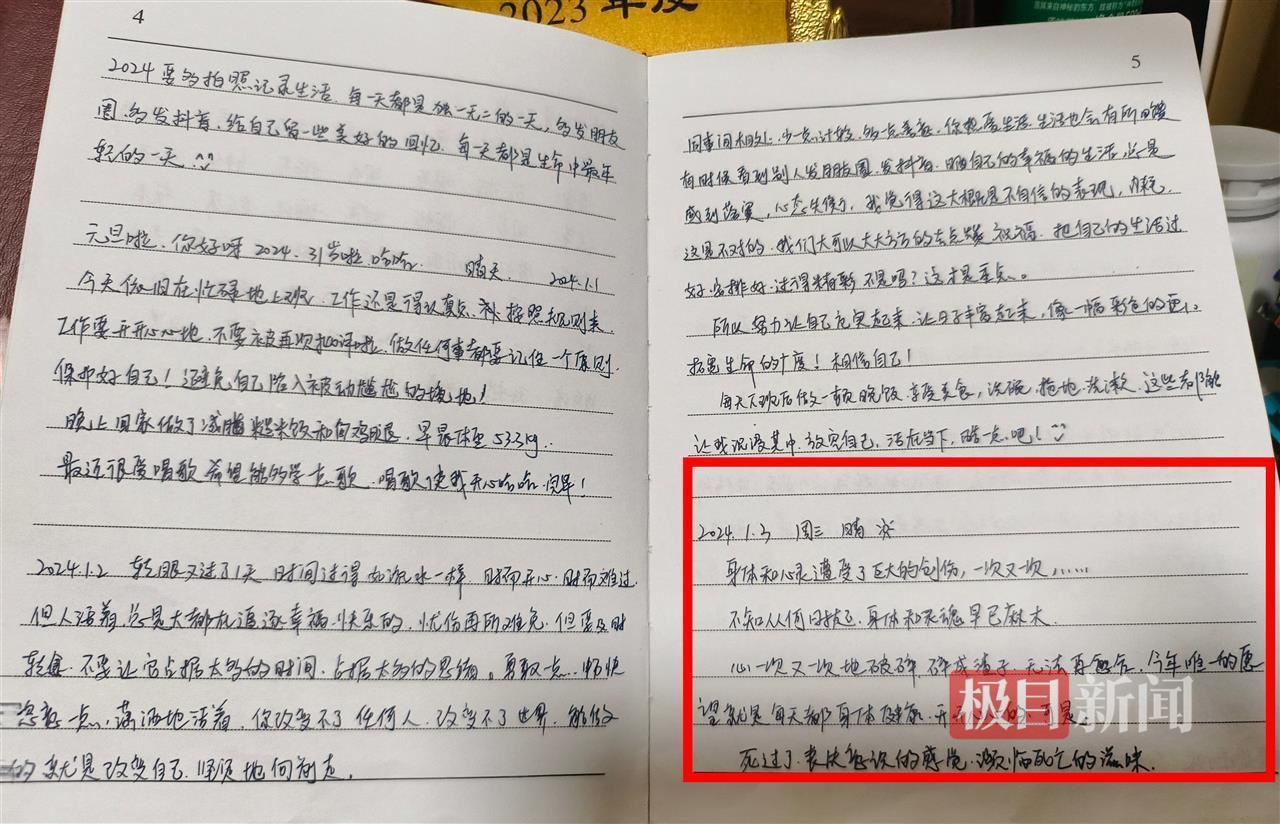 2023年度
4
2024要多拍照记录生活、每一天都是独一无二的一天，多发朋友
圈、多发抖音、给自己留一些美好的回忆、每一天都是生命中最年
轻的一天
元旦啦、你好呀2024、31岁啦、哈哈、 晴天 2024.1.1
今天依旧在忙碌地上班、工作还是得认真点、按照规则来
工作要开开心心地、不要被再次批评啦、做任何事都要记住一个原则、
保护好自己！避免自己陷入被动尴尬的境地！
晚上回家做了减脂糙米饭和鸡腿、早晨体重53.3kg、
最近很爱唱歌、希望能多学点歌、唱歌使我开心哈哈、简单！
2024.1.2 转眼又过了1天 时间过得如流水一样、时而开心、时而难过、
但人活着、总是大都在追逐幸福、快乐的、忧伤再所难免、但要及时
转换、不要让它占据太多的时间、占据太多的思绪。勇敢一点、畅快
恣意一点、潇洒地活着、你改变不了任何人、改变不了世界、能做
的就是改变自己、坚定地向前走、
5
同事间相处、少一点计较、多一点善意、你热爱生活、生活也会有所回馈
有时候看到别人发朋友圈、发抖音、晒自己的幸福的生活、总是
感到落寞，心态失衡了，我觉得这大概是不自信的表现，内耗、
这是不对的、我们大可以大大方方的去点赞、祝福、把自己的生活过
好、安排好、过得精彩不是吗？这才是重点。
所以努力让自己充实起来、让日子丰富起来，像一幅彩色的画、
拓宽生命的广度！相信自己！
每天下班后做一顿晚饭、享受美食，洗碗、拖地、洗漱、这些都能
让我沉浸其中、放空自己、活在当下、酷一点吧！
2024.1.3 周三 晴
身体和心灵遭受了巨大的创伤，一次又一次，……
不知从何时起、身体和灵魂早已麻木
心一次又一次地破碎、碎成渣子、无法再愈合、今年唯一的愿
望就是每天都身体健康、开开心心的、可是、
死过了、表决多次的感觉、濒临死亡的滋味、
极目新闻